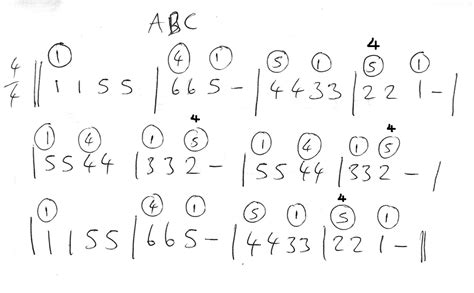 ABC
4
① ④ ① ⑤ ① ⑤ ①
4/4 || 1 1 5 5 | 6 6 5 - | 4 4 3 3 | 2 2 1 - |
4 4
① ④ ① ⑤ ① ④ ① ⑤
| 5 5 4 4 | 3 3 2 - | 5 5 4 4 | 3 3 2 - |
4
① ④ ① ⑤ ① ⑤ ①
| 1 1 5 5 | 6 6 5 - | 4 4 3 3 | 2 2 1 - ||